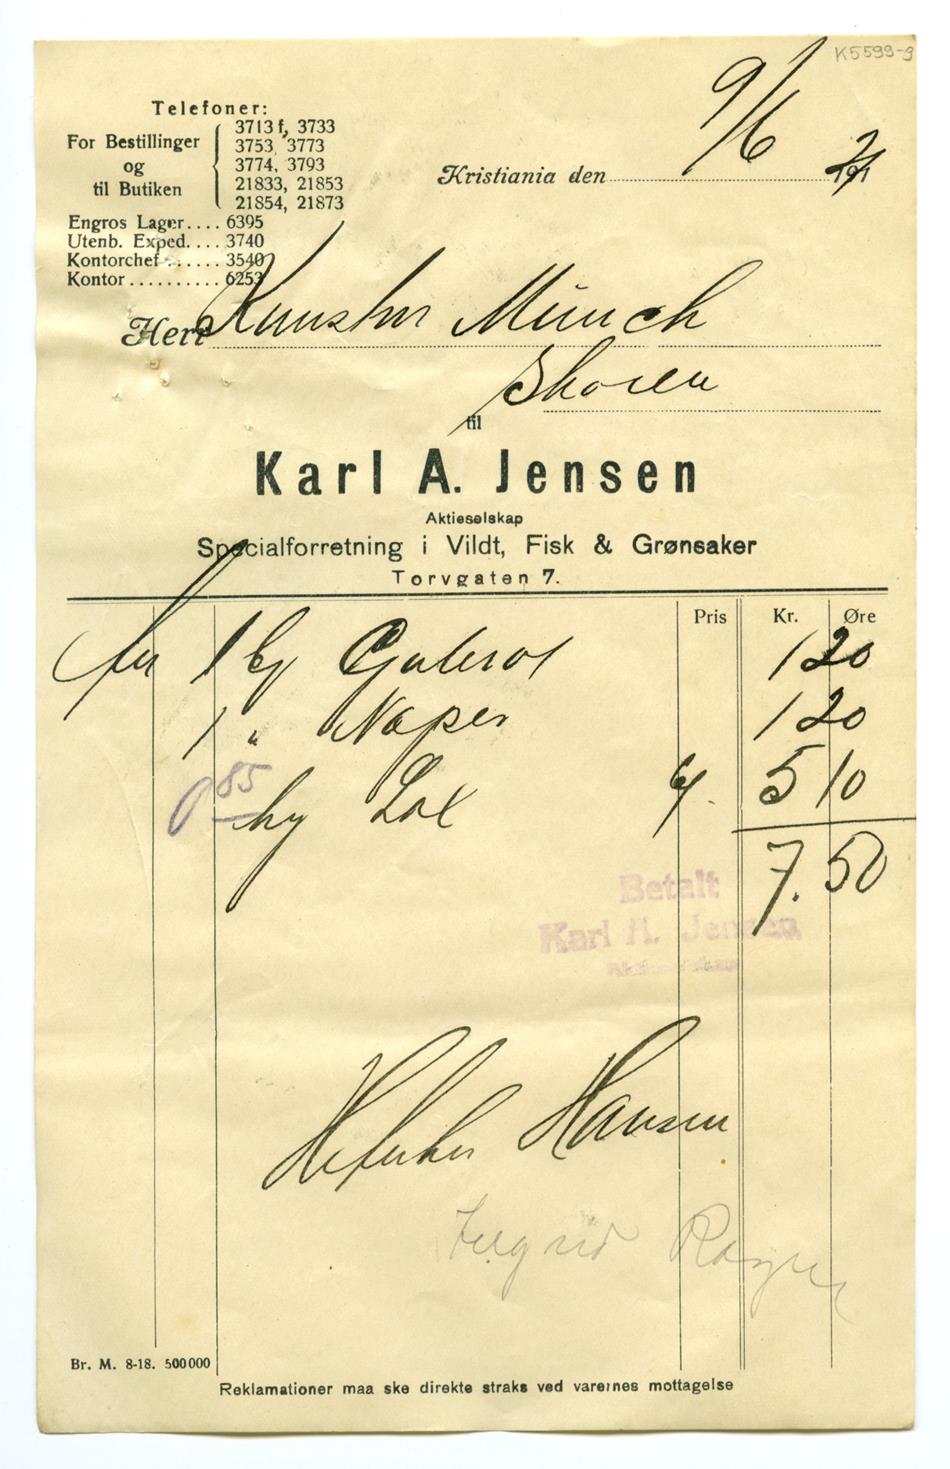 K5599-9
Telefoner:
For Bestillinger og til Butiken
3713 f, 3733
3753, 3773
3774, 3793
21833, 21853
21854, 21873
Engros Lager.... 6395
Utenb. Exped.... 3740
Kontorchef ...... 3540
Kontor .......... 6253
Kristiania den 9/6 21
Herr Kunstner Münch
Skøien
til
Karl A. Jensen
Aktieselskap
Specialforretning i Vildt, Fisk & Grønsaker
Torvgaten 7.
Pris Kr. Øre
1 Gulerot 1 20
1 " Neper 1 20
0 85 hg Lax 6/. 5 10
7.50
Betalt
Karl A. Jensen
Hansen
Ingrid
Br. M. 8-18. 500000
Reklamationer maa ske direkte straks ved varernes mottagelse